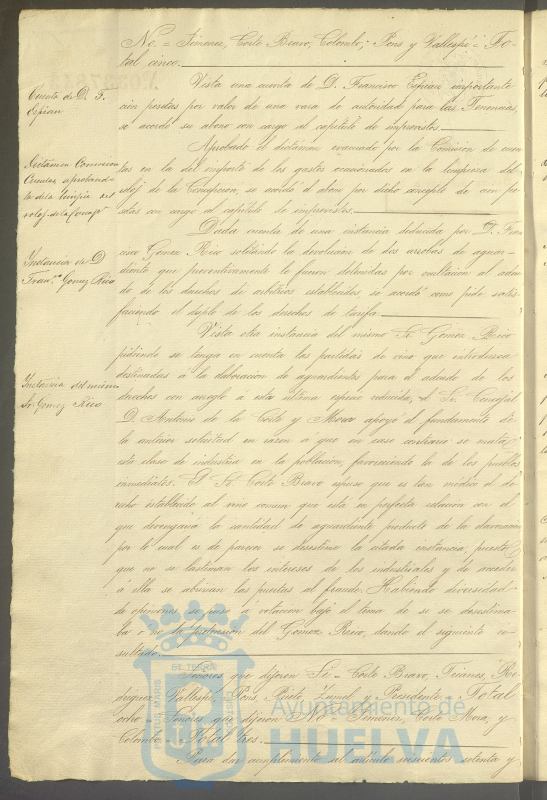 No = Jimenez, Corto Bravo, Colombo, Pons y Vallespí = To-
tal cinco.
Cuenta de D. F.
Espian
Vista una cuenta de D. Francisco Espian importante
cien pesetas por valor de una vara de autoridad para las Tenencias,
se acordó su abono con cargo al capítulo de imprevistos.
Dictámen Comision
Cuentas aprobando
la de la limpia del
reloj de la Concepn
Aprobado el dictámen evacuado por la Comision de cuen-
tas en la del importe de los gastos ocasionados en la limpieza del
reloj de la Concepcion, se acordó el abono por dicho concepto de cien pe-
setas con cargo al capítulo de imprevistos.
Instancia de D.
Franco Gomez Rico
Dada cuenta de una instancia deducida por D. Fran-
cisco Gomez Rico solicitando la devolucion de dos arrobas de aguar-
diente que preventivamente le fueron detenidas por ocultacion al adeu-
do de los derechos de arbitrios establecidos, se acordó como pide satis-
faciendo el duplo de los derechos de tarifa.
Instancia del mismo
Sr Gomez Rico
Vista otra instancia del mismo Sr Gomez Rico
pidiendo se tengan en cuenta las partidas de vino que introduzca
destinadas á la elaboracion de aguardientes para el adeudo de los
derechos con arreglo á esta última especie reducida, el Sr. Concejal
D. Antonio de la Corte y Mora apoyó el fundamento de
la anterior solicitud en razon á que en caso contrario se mataba
esta clase de industria en la poblacion, favoreciendo la de los pueblos
inmediatos. El Sr Corto Bravo expuso que es tan módico el de-
recho establecido al vino comun que está en perfecta relacion con el
que devengaria la cantidad de aguardiente producto de la elaboracion
por lo cual es de parecer se desestime la citada instancia, puesto
que no se lastiman los intereses de los industriales y de acceder
á ella se abririan las puertas al fraude. Habiendo diversidad
de opiniones se puso á votacion bajo el tema de si se desestima-
ba ó no la pretension del Gomez Rico, dando el siguiente re-
sultado.
Señores que dijeron Si = Corto Bravo, Trianes, Ro-
driguez, Vallespí, Pons, Prieto, Zamel y Presidente = Total
ocho = Señores que dijeron No = Jimenez, Corte Mora, y
Colombo = Total tres.
Para dar cumplimiento al artículo doscientos setenta y
ET TERRÆ
PORTUS MARIS
Ayuntamiento de
HUELVA